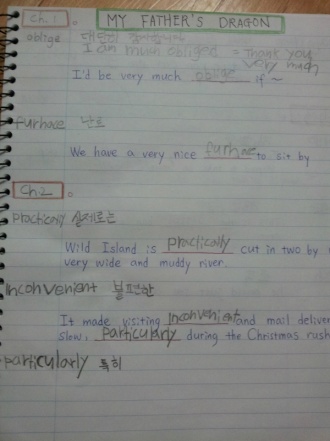 Ch. 1. MY FATHER'S DRAGON
oblige 대단히 감사합니다
I am much obliged = Thank you very much
I'd be very much oblige if ~
furnace 난로
We have a very nice furnace to sit by
Ch.2.
Practically 실제로는
Wild Island is practically cut in two by
very wide and muddy river.
Inconvenient 불편한
It made visiting inconvenient and mail deliver
slow, particularly during the Christmas rush
particularly 특히